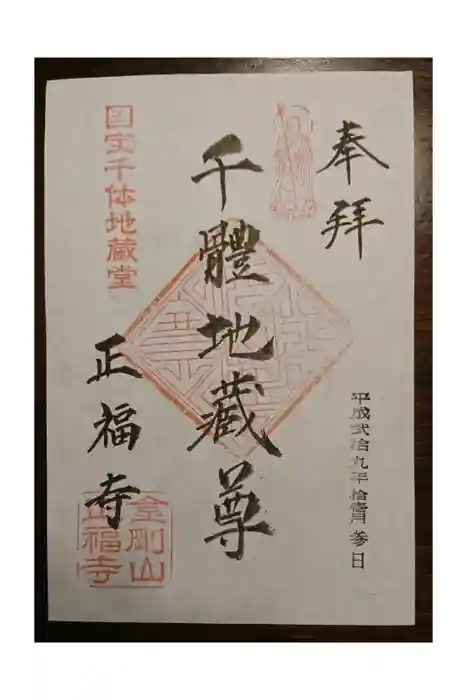 奉拝
平成弐拾九年拾壱月参日
千體地藏尊
国宝千体地蔵堂
正福寺
金剛山
正福寺